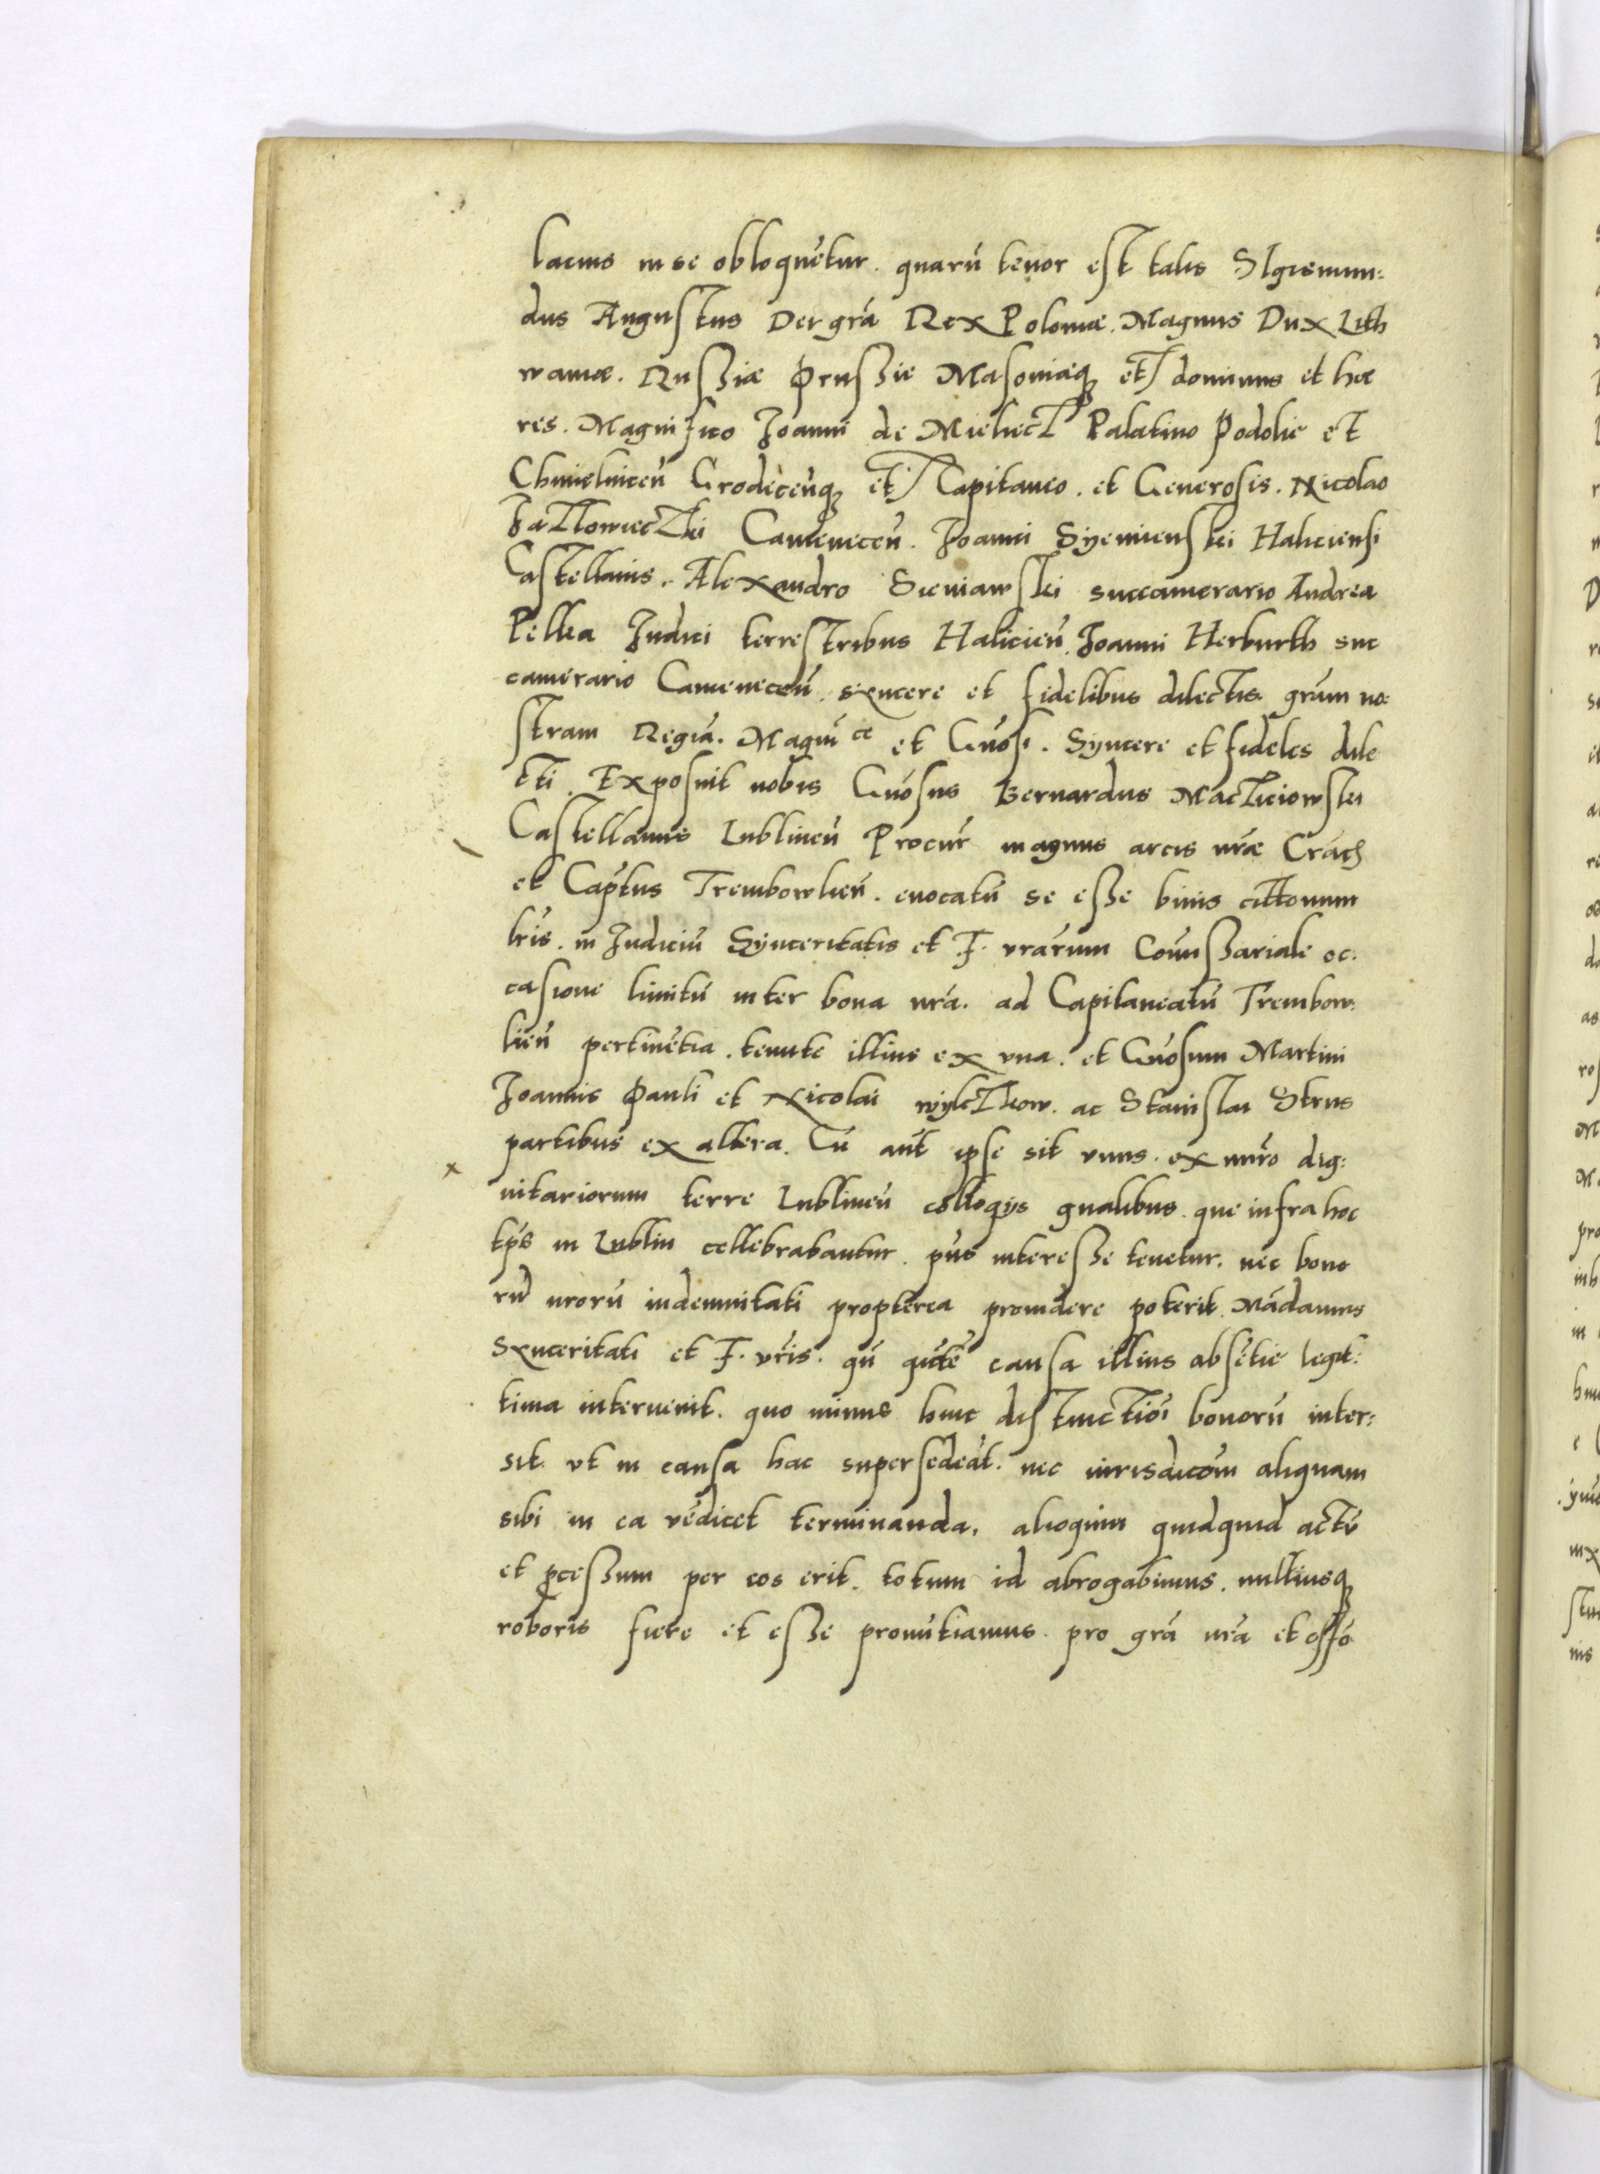 lacius in se obloquētur. quarū tenor est talis SIgismun:
dus Augustus Dei grā Rex Poloniæ. Magnus Dux Lith
waniæ. Russiæ Prussie Masoviæq̨ etc dominus et hæ
res. Magnifico Joanni de Mielecz Palatino Podolie et
Chmielnicen̄ Grodecen̄q̨ etc Capitaneo. et Generosis. Nicolao
Jazlowieczki Camenecen̄. Joanni Syemienski Haliciensi
Castellanis. Alexandro Sieniawski succamerario Andrea
Pellka Judici terrestribus Halicien̄. Joanni Herburth suc
camerario Camenecen̄. syncere et fidelibus dilectis. grām no
stram Regiā. Magni ce et Gnōsi. Syncere et fideles dile
cti. Exposuit nobis Gnōsus Bernardus Macziciowski
Castellanus Lublinen̄ Procūr magnus arcis nrāe Crāc
et Capt̄us Trembowlien̄. euocatū se esse binis citt̄onum
lrīs. in Judiciū Synceritatis et F. vrārum Com̄issariale oc:
casione limitū inter bona nrā. ad Capitaneatū Trembow:
lien̄ pertinētia. tenute illius ex vna. et Gnōsum Martini
Joannis Pauli et Nicolai wylczkow. ac Stanislai Strus
partibus ex altera. Cū aūt ipse sit vnus. ex nurō dig:
nitariorum terre Lublinen̄ colloqijs gnālibus. que infra hoc
tp̄s in Lublin cellebrabantur. pn̄s interesse tenetur. nec bono
rū nrorū indemnitati propterea prouidere poterit. Mādamus
Synceritati et F. vrīs. qn̄ quidē causa illius absētie legit:
tima interuenit. quo minus huic distinctiōi bonorū inter:
sit. vt in causa hac supersedeāt. nec iurisdicōm aliquam
sibi in ea vēdicet terminanda. alioquin quidquid actū
et pcessum per eos erit. totum id abrogabimus. nulliusq̨
roboris fuere et esse pronūtiamus. pro grā nrā et offō